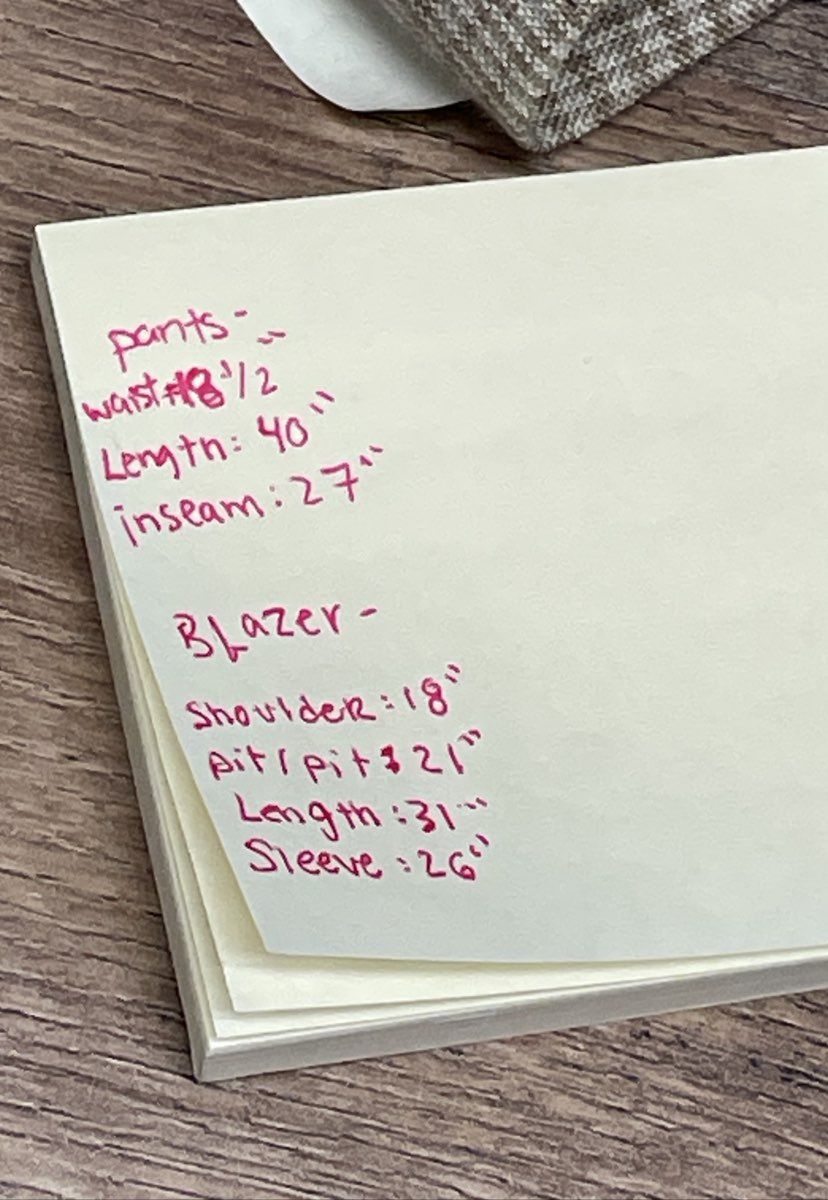 pants-
waist: 18 1/2"
Length: 40"
inseam: 27"
Blazer-
Shoulder: 18"
pit/pit: 21"
Length: 31"
Sleeve: 26"